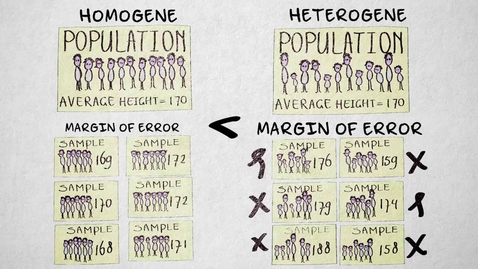 HOMOGENE
POPULATION
AVERAGE HEIGHT=170
MARGIN OF ERROR
SAMPLE
169
SAMPLE
172
SAMPLE
170
SAMPLE
172
SAMPLE
168
SAMPLE
171
<
HETEROGENE
POPULATION
AVERAGE HEIGHT=170
MARGIN OF ERROR
SAMPLE
176
SAMPLE
159
X
X
SAMPLE
179
SAMPLE
174
X
SAMPLE
188
SAMPLE
158
X